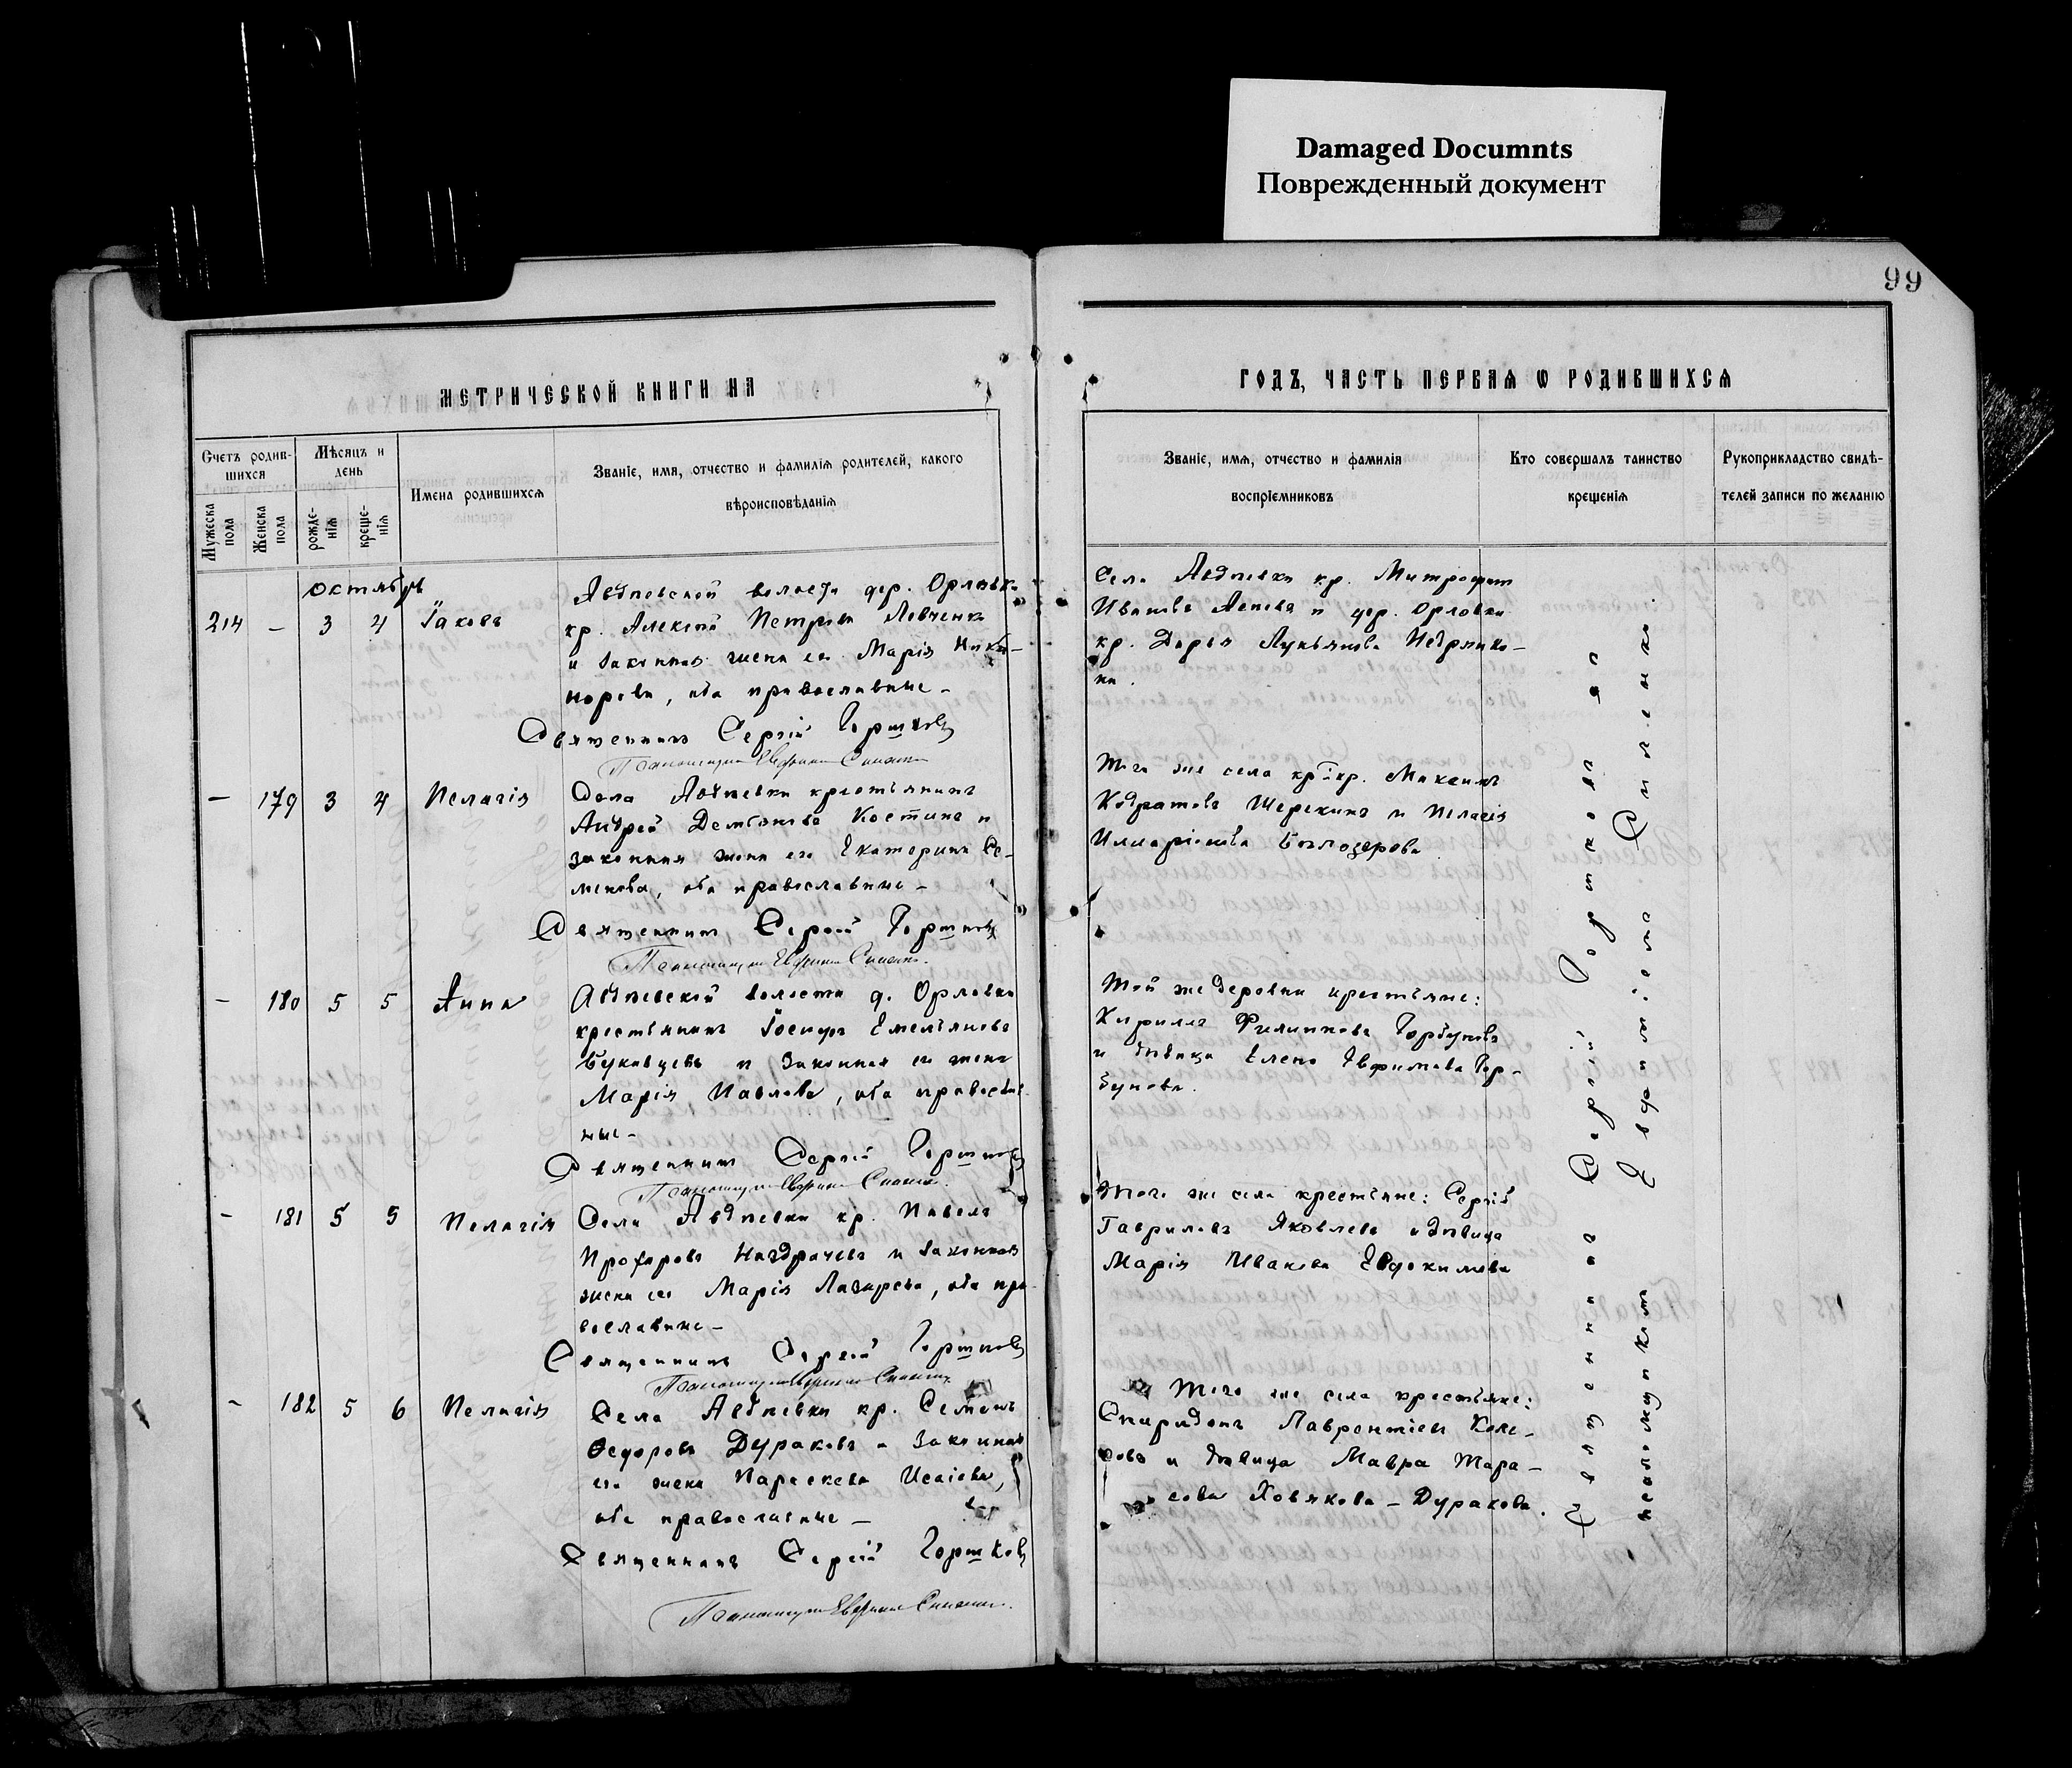 Damaged Documnts
Поврежденный документ
99
МЕТРИЧЕСКОЙ КНИГИ НА
ГОДЪ, ЧАСТЬ ПЕРВАЯ Ѡ РОДИВШИХСЯ
Счетъ родив-
шихся
Мужеска пола
Женска пола
Мѣсяцъ и
день
рожде-
нія
креще-
нія
Имена родившихся
Званіе, имя, отчество и фамилія родителей, какого
вѣроисповѣданія
Званіе, имя, отчество и фамилія
воспріемниковъ
Кто совершалъ таинство
крещенія
Рукоприкладство свидѣ-
телей записи по желанію
октябрь
214 – 3 4 Іаковъ
Авдѣевской волости дер. Орловки
кр. Алексѣй Петровъ Левченко
и законная жена его Марія Ника-
норова, оба православные –
Священникъ Сергій Горшковъ
Села Авдѣевки кр. Митрофанъ
Ивановъ и дер. Орловки
кр. Дарья Лукьянова
– 179 3 4 Пелагія
Села Авдѣевки крестьянинъ
Андрей Демьяновъ Костинъ и
законная жена его Екатерина Се-
менова, оба православные –
Священникъ Сергій Горшковъ
Того же села кр. Максимъ
Кодратовъ и Пелагія
Бѣлозерова
– 180 5 5 Анна
Авдѣевской волости д. Орловки
крестьянинъ Іосифъ Емельяновъ
Буковцевъ и законная его жена
Марія Павлова, оба православ-
ные –
Священникъ Сергій Горшковъ
Той же деревни крестьяне:
Кирилъ Филиповъ Горбуновъ
и дѣвица Елена Евфимова Гор-
бунова.
– 181 5 5 Пелагія
Села Авдѣевки кр. Павелъ
Прохоровъ Ноздрачевъ и законная
жена его Марія Лазарева, оба пра-
вославные –
Священникъ Сергій Горшковъ
Того же села крестьяне: Сергій
Гавриловъ Яковлевъ и дѣвица
Марія Иванова Евдокимова
– 182 5 6 Пелагія
Села Авдѣевки кр. Семенъ
Ѳедоровъ Дураковъ и законная
его жена Параскева Исаіева,
оба православные –
Священникъ Сергій Горшковъ
Того же села крестьяне:
Спиридонъ Лаврентіевъ
и дѣвица Мавра Тара-
сова Ховякова – Дуракова.
Священникъ Сергій Горшковъ
псаломщикъ